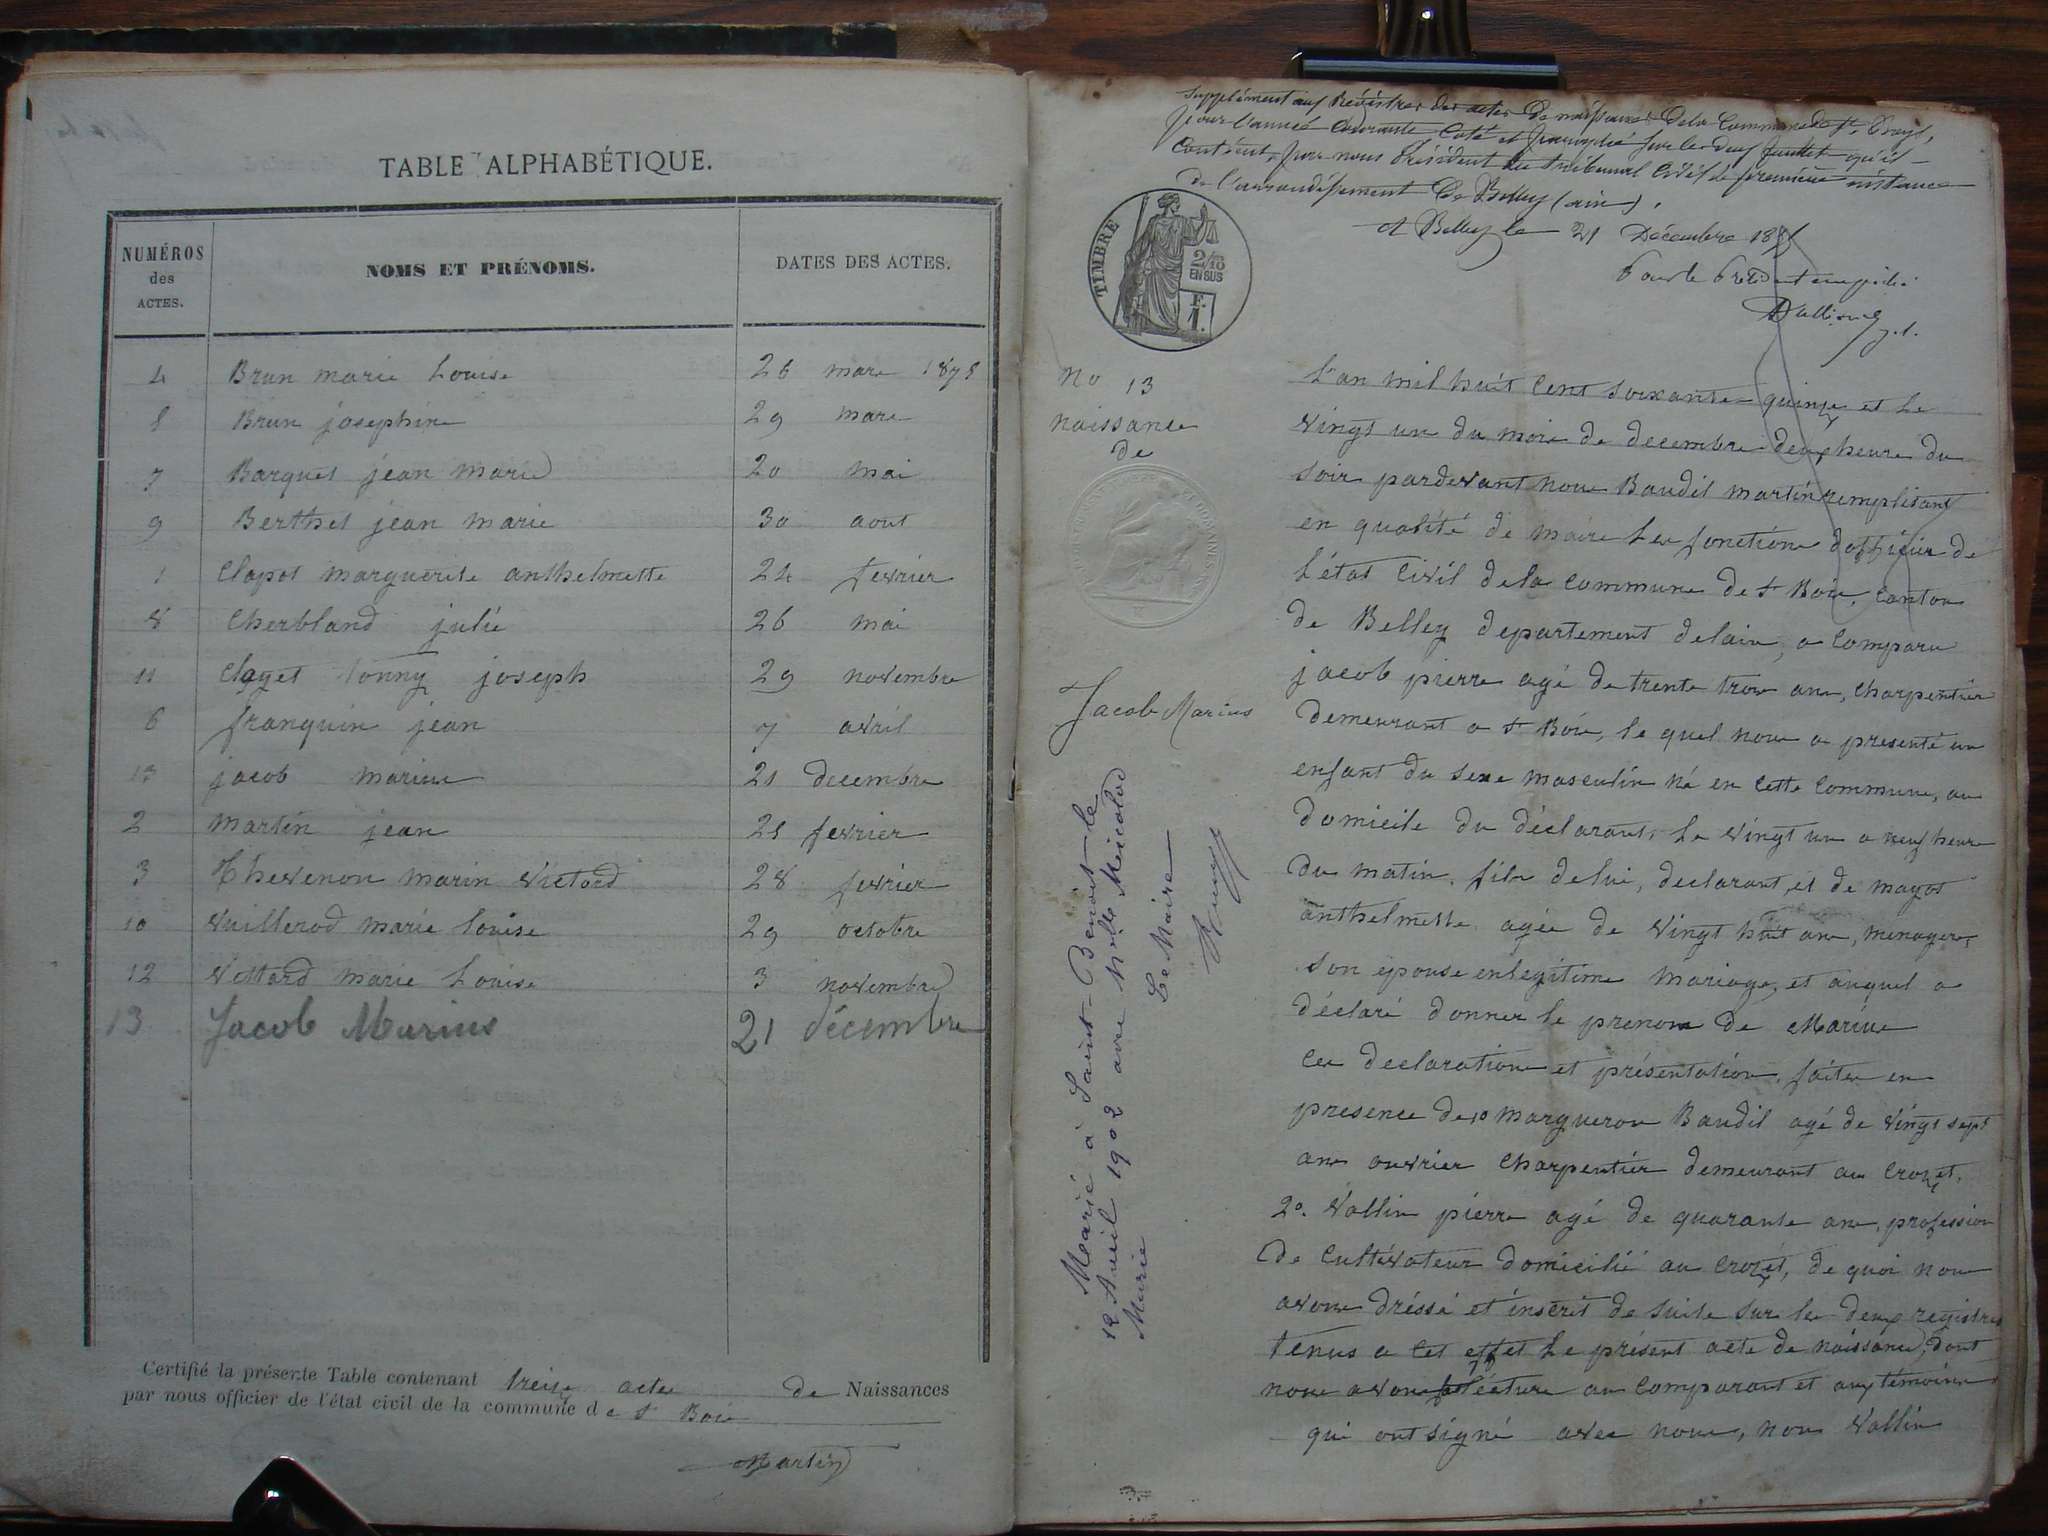 TABLE ALPHABÉTIQUE.
NUMÉROS des ACTES. NOMS ET PRÉNOMS. DATES DES ACTES.
4 Brun marie Louise 26 mars 1875
5 Brun josephine 29 mars
7 Barquet jean marie 20 mai
9 Berthet jean marie 30 aout
1 Clapot marguerite anthelmette 24 fevrier
8 Cherbland julie 26 mai
11 Claget tonny joseph 29 novembre
6 franquin jean 7 avril
13 jacob marius 21 decembre
2 martin jean 25 fevrier
3 Thevenon marin victord 28 fevrier
10 vuillerod marie louise 29 octobre
12 vettard marie Louise 3 novembre
13 Jacob Marius 21 décembre
Certifié la présente Table contenant treize actes de Naissances
par nous officier de l'état civil de la commune de St Bois
Martin
Supplément aux Registres des actes de naissances de la Commune de St
pour l'année courante coté et paraphé sur les deux feuillets qu'il
contient, par nous Président du tribunal civil de première instance
de l'arrondissement de Belley (ain).
A Belley le 21 Décembre 1875
Pour le Président empêché
TIMBRE
2/10
EN SUS
F.
1.
no 13
naissance
de
Jacob Marius
Marié à Saint-Benoit le
12 Avril 1902 avec Melle Meicolod
Marie
Le Maire
L'an mil huit cent soixante quinze et le
vingt un du mois de decembre deux heure du
soir pardevant nous Baudil martin remplisant
en qualité de maire les fonctions d'officier de
l'état civil de la commune de St Bois, canton
de Belley departement de lain, a comparu
jacob pierre agé de trente trois ans, charpentier
demeurant a St Bois, le quel nous a presenté un
enfant du sexe masculin né en cette commune, au
domicile du déclarant, le vingt un a neuf heure
du matin, fils de lui, declarant, et de mayot
anthelmette agée de vingt huit ans, menagere,
son épouse en legitime mariage, et auquel a
déclaré donner le prenom de Marius
ces declaration et présentation faites en
presence de, 1o margueron Baudil agé de vingt sept
ans ouvrier charpentier demeurant au crozet.
2o. vallin pierre agé de quarante ans, profession
de cultivateur domicilié au crozet, de quoi nous
avons dréssé et inscrit de suite sur les deux registres
tenus a cet effet le présent acte de naissance, dont
nous avons lecture au comparant et aux témoins
qui ont signé avec nous, non vallin